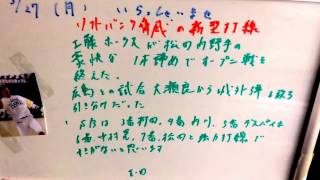 3/27 (月) いらっしゃいませ
ソフトバンク脅威の新型打線
工藤ホークスが松田内野手の
豪快が1本締めでオープン戦を
終えた。
広島との試合大瀬良から
引き分けだった
3番柳田、4番内川、5番デスパイネ
6番、中村晃、7番、松田と強力打線で
思います